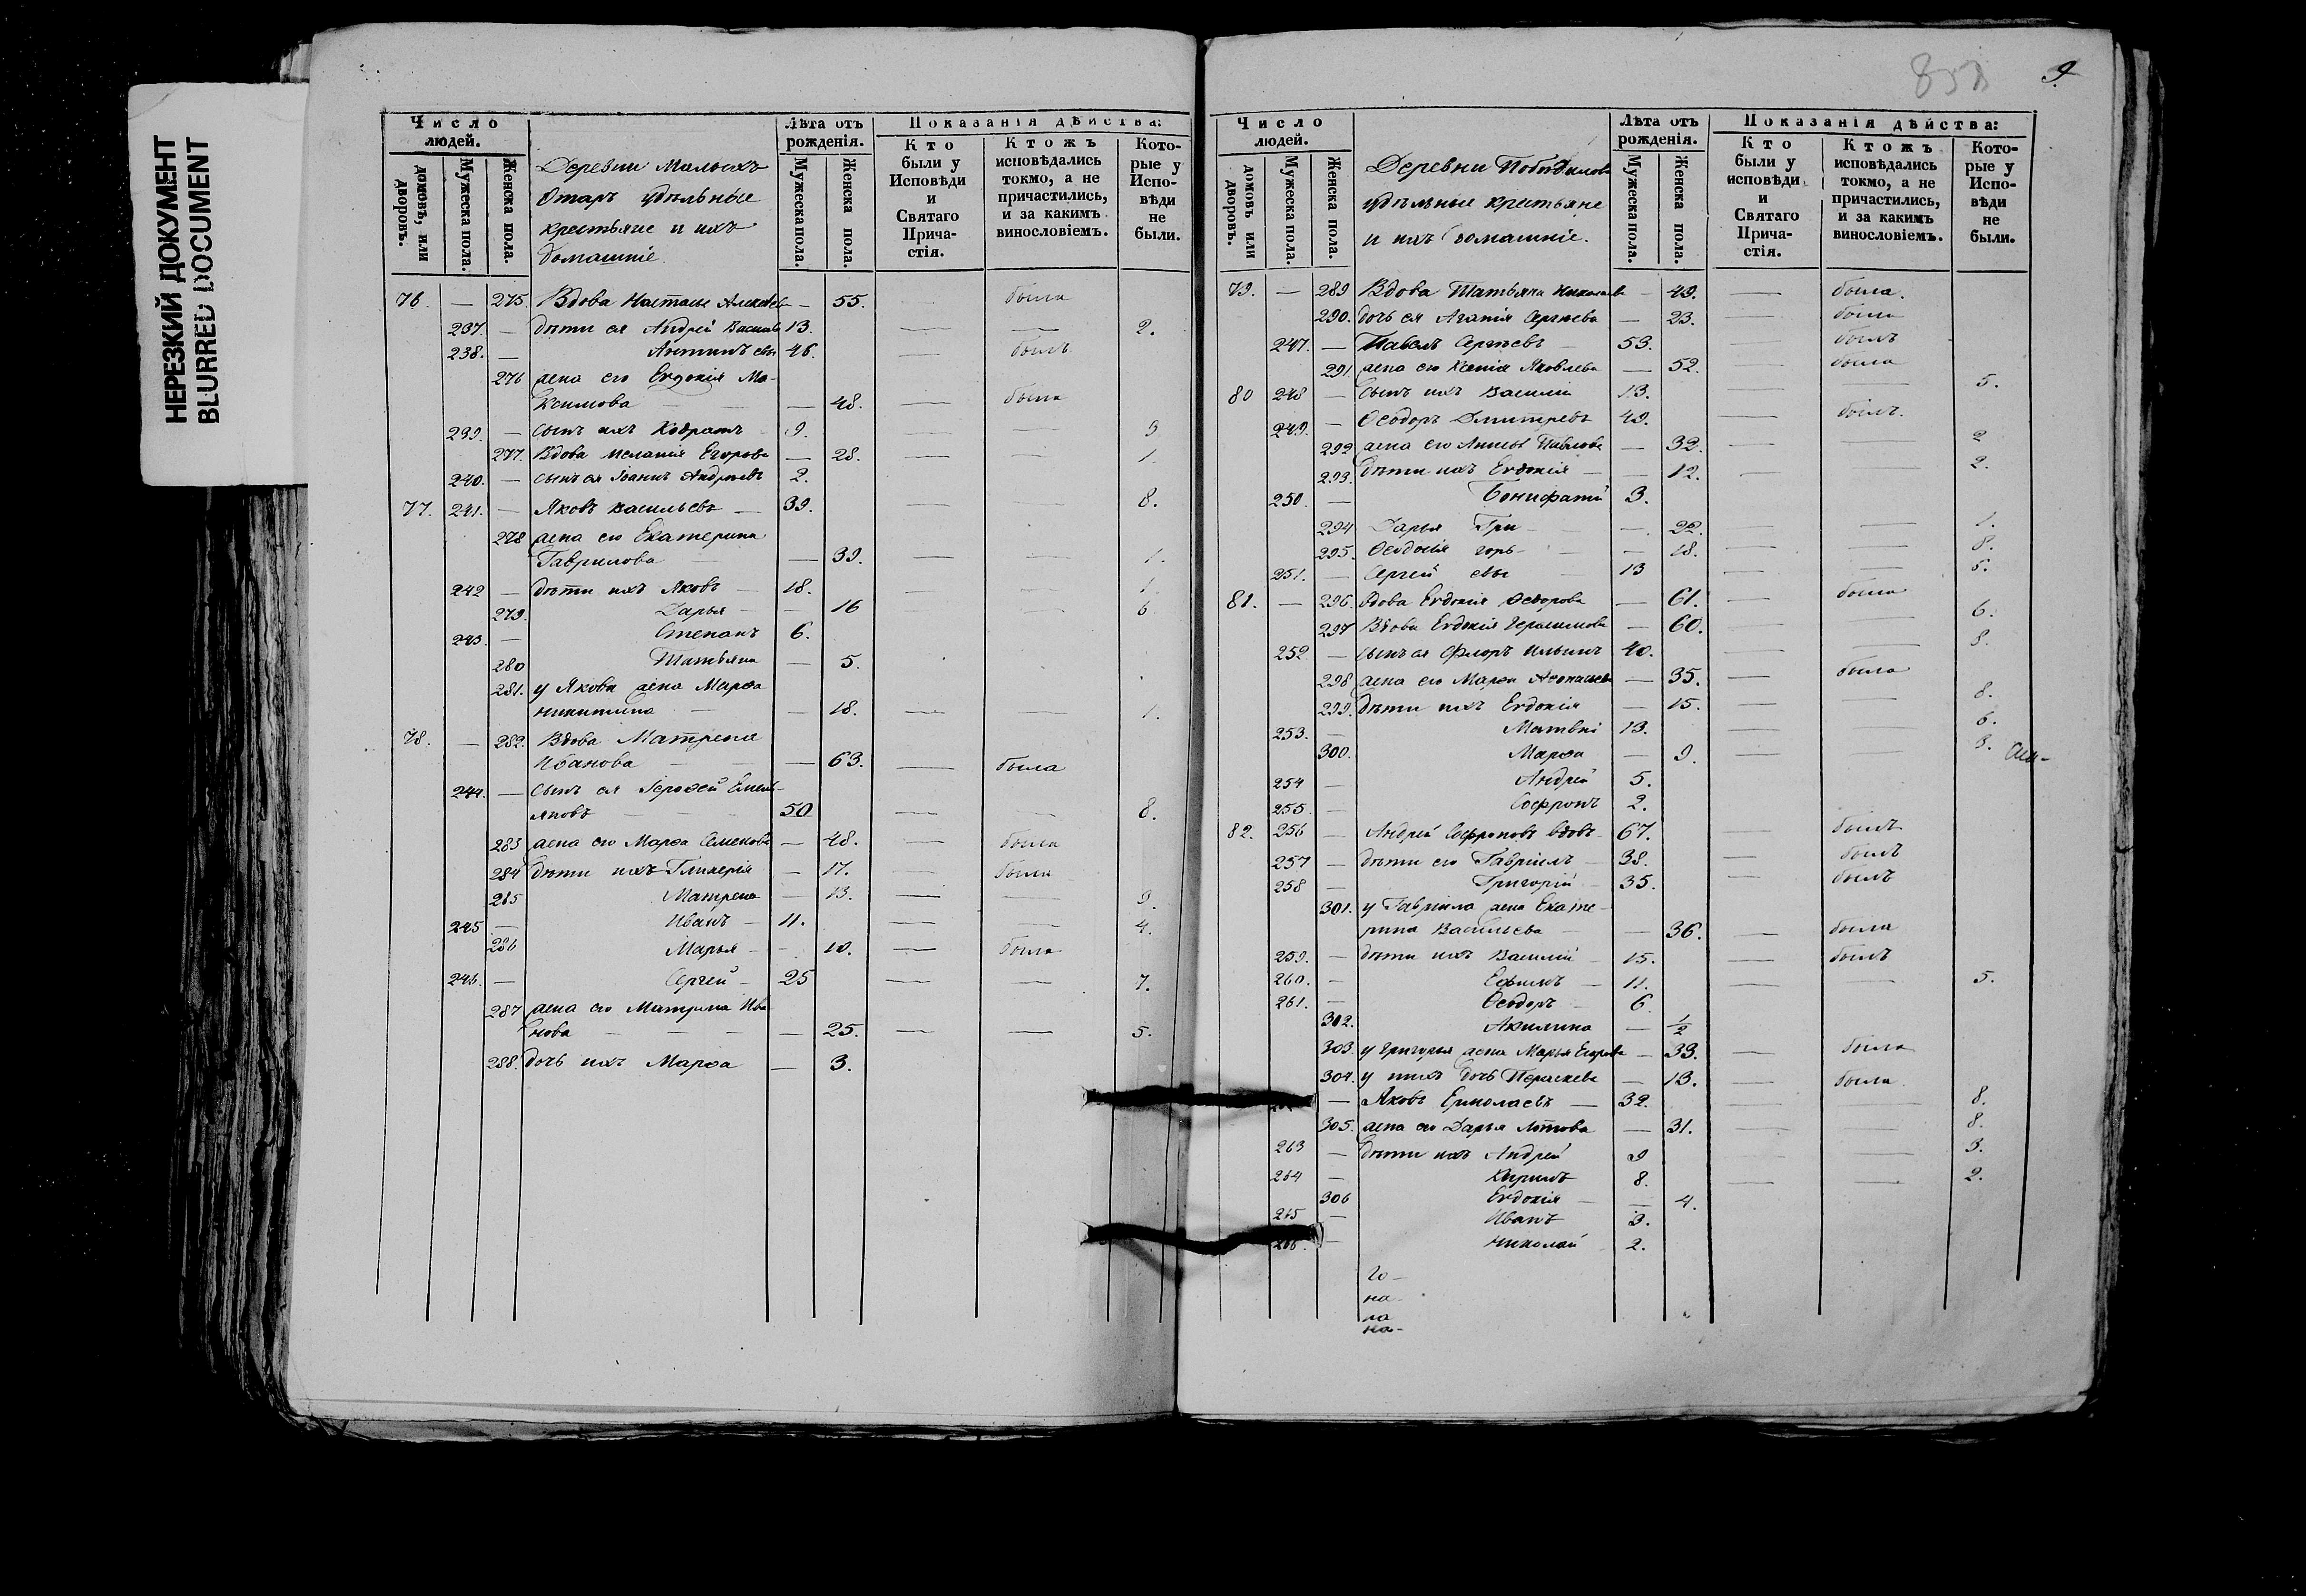 НЕРЕЗКИЙ ДОКУМЕНТ
BLURRED DOCUMENT
Число людей.
домовъ, или дворовъ.
Мужеска пола.
Женска пола.
Деревни Малыхъ
Отаръ удѣльные
крестьяне и ихъ
домашніе.
Лѣта отъ рожденія.
Мужеска пола.
Женска пола.
Показанія дѣйства:
Кто были у Исповѣди и Святаго Прича-стія.
Ктожъ исповѣдались токмо, а не причастились, и за какимъ винословіемъ.
Кото-рые у Испо-вѣди не были.
76. — 275. Вдова Настасья Алексѣева — 55. — была
237. — дѣти ея Андрей Васильев 13. — — 2.
238. — Антипъ евы 46. — былъ
276 жена его Евдокія Ма-
ксимова — 48. — была
239. — сынъ ихъ Кодратъ 9. — 9
277. Вдова Меланія Егорова — 28. — — 1.
240. — сынъ ея Іоаннъ Андреевъ 2.
77. 241. — Яковъ Васильевъ — 39. — — 8.
278 жена его Екатерина
Гаврилова — 39. — — 1.
242 — дѣти ихъ Яковъ — 18. — — 1.
279. Дарья — 16 — — 6
243. — Степанъ 6.
280 Татьяна — 5.
281. у Якова жена Марѳа
Никитина — 18. — 1.
78. — 282. Вдова Матрена
Иванова — 63. — была
244. — сынъ ея Ерофей Емель-
яновъ 50 — — 8.
283 жена его Марѳа Семенова — 48. — была
284 дѣти ихъ Гликерія — 17. — была
285 Матрена — 13. — — 9.
245 — Иванъ — 11. — — 4.
286 Марья — 10. — была
246. — Сергей — 25 — — 7.
287 жена его Матрена Ива
нова — 25. — — 5.
288. дочь ихъ Марѳа — 3.
9
Число людей.
домовъ или дворовъ.
Мужеска пола.
Женска пола.
Деревни Побѣдилова
удѣльные крестьяне
и ихъ домашніе.
Лѣта отъ рожденія.
Мужеска пола.
Женска пола.
Показанія дѣйства:
Кто были у исповѣди и Святаго Прича-стія.
Ктожъ исповѣдались токмо, а не причастились, и за какимъ винословіемъ.
Кото-рые у Испо-вѣди не были.
79. — 289 Вдова Татьяна Николаева — 49. — была.
290. дочь ея Агапія Сергѣева — 23. — была
247. — Павелъ Сергѣевъ — 53. — былъ
291. жена его Ксенія Яковлева — 52. — была
80 248 — сынъ ихъ Василій 13. — — 5.
249. — Ѳеодоръ Дмитревъ 49. — былъ.
292 жена его Анисья Павлова — 32. — — 2
293. дѣти ихъ Евдокія — 12. — 2.
250. — Бонифатій 3.
294 Дарья Гри — 22. — — 1.
295. Ѳеодосія горь — 18. — — 8.
251. — Сергей евы 13 — — 6.
81. — 296. Вдова Евдокія Ѳедорова — 61. — была
297 Вдова Евдокія Герасимова — 60. — — 6.
252 — сынъ ея Флоръ Ильинъ 40. — — 8.
298 жена его Марѳа Аѳонасьева — 35. — была
299. дѣти ихъ Евдокія — 15. — — 8.
253. — Матвѣй 13. — — 6.
300. Марѳа — 9. — — 3.
254 — Андрей 5.
255. — Софронъ 2.
82. 256 — Андрей Софроновъ вдовъ 67. — былъ
257 — дѣти его Гавріилъ — 38. — былъ
258 — Григорій 35. — былъ
301. у Гавріила жена Екате-
рина Васильева — 36. — была
259. — дѣти ихъ Василій — 15. — былъ
260. — Ефимъ — 11. — — 5.
261. — Ѳеодоръ — 6
302. Акилина — 1/2
303. у Григорья жена Марья Егорова — 33. — была
304. у нихъ дочь Пераскева — 13. — была
— Яковъ Ермолаевъ — 32. — — 8.
305. жена его Дарья — 31. — — 8.
263 — дѣти ихъ Андрей 9 — — 3.
264 — Кирилъ 8. — — 2.
306 Евдокія — 4.
265 — Иванъ 3.
266. — Николай 2.
го-
на-
ла
на-